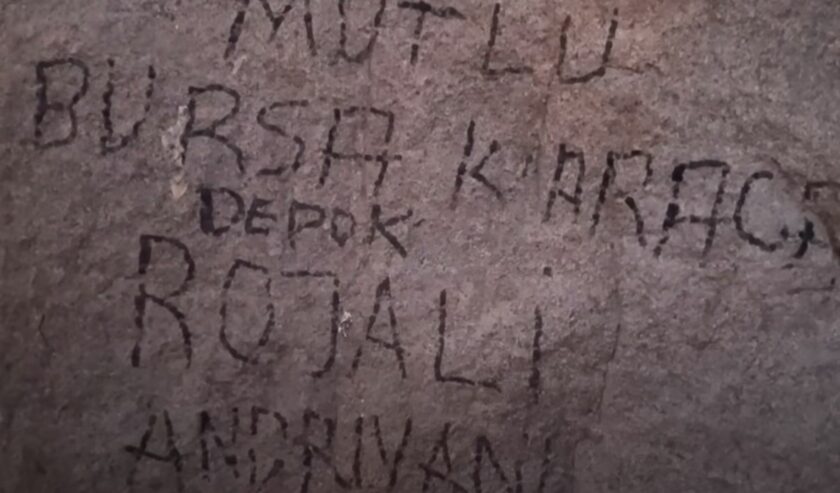 MUTLU
BURSA KARAC
DEPOK
ROJALİ
ANDRIVANI